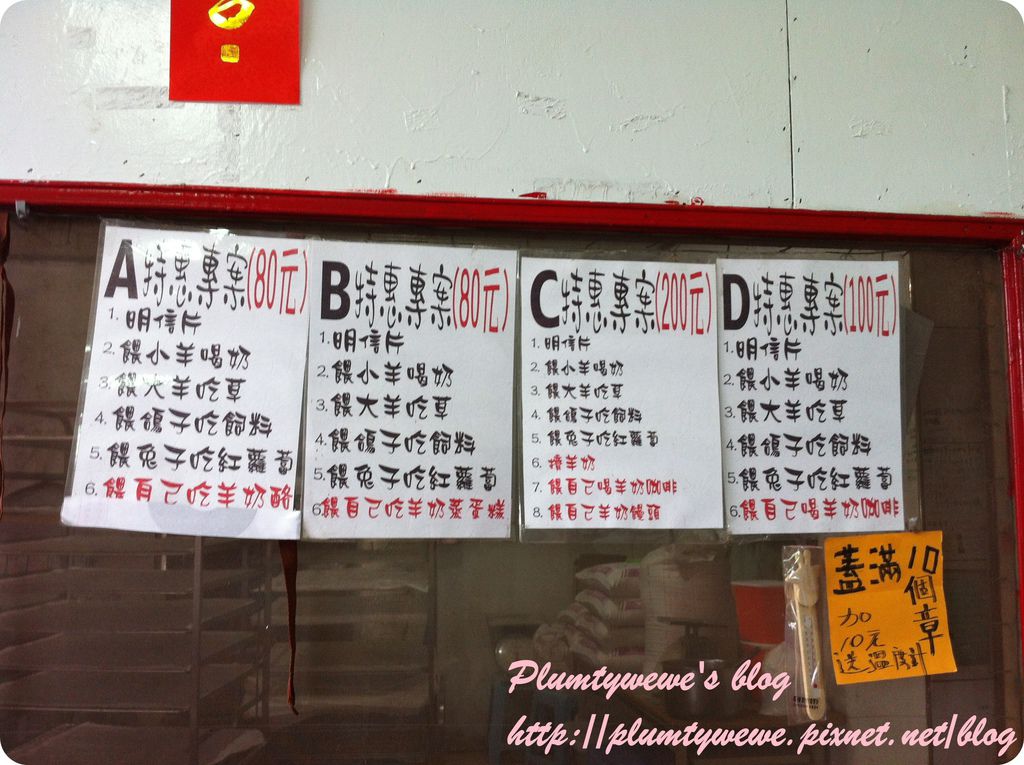 A特惠專案(80元)
1. 明信片
2. 餵小羊喝奶
3. 餵大羊吃草
4. 餵鴿子吃飼料
5. 餵兔子吃紅蘿蔔
6. 餵自己吃羊奶酪
B特惠專案(80元)
1. 明信片
2. 餵小羊喝奶
3. 餵大羊吃草
4. 餵鴿子吃飼料
5. 餵兔子吃紅蘿蔔
6. 餵自己吃羊奶蒸蛋糕
C特惠專案(200元)
1. 明信片
2. 餵小羊喝奶
3. 餵大羊吃草
4. 餵鴿子吃飼料
5. 餵兔子吃紅蘿蔔
6. 擠羊奶
7. 餵自己喝羊奶咖啡
8. 餵自己羊奶饅頭
D特惠專案(100元)
1. 明信片
2. 餵小羊喝奶
3. 餵大羊吃草
4. 餵鴿子吃飼料
5. 餵兔子吃紅蘿蔔
6. 餵自己喝羊奶咖啡
蓋滿10個章
加
10元
送溫度計
Plumtywewe's blog
http://plumtywewe.pixnet.net/blog